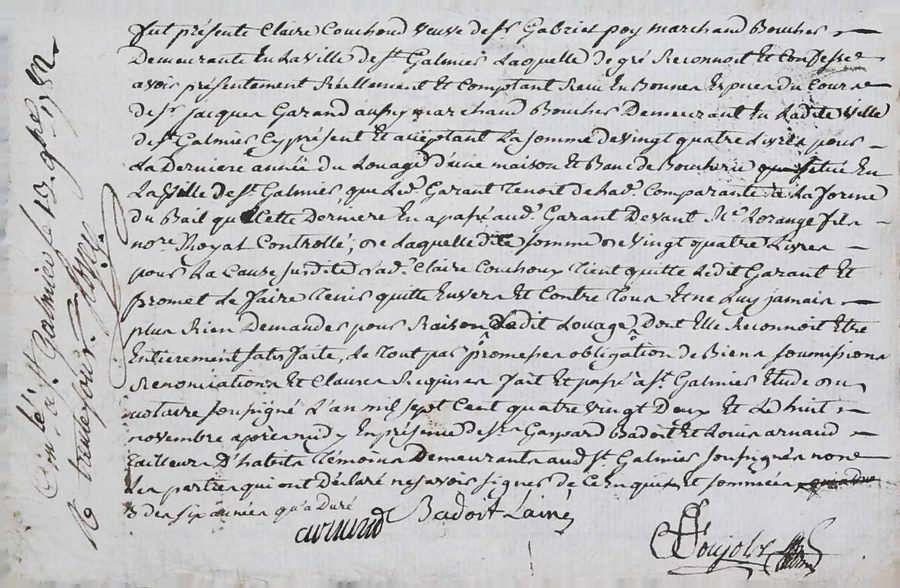 fut présente Claire Couchoud veuve de Sr Gabriel poy marchand Boucher
Demeurante En la ville de St Galmier Laquelle de gré Reconnoit Et Confesse
avoir présentement Réellement Et Comptant Receu En Bonnes Espèces du Cours
de Sr jacques Garand aussy marchand Boucher Demeurant En Ladite ville
de St Galmier Cy présent Et acceptant La somme de vingt quatre Livres pour
La Derniere année du Louage d'une maison Et Banc de Boucherie située En
La ville de St Galmier que Led. Garant Tenoit de Lad. Comparante à La forme
du Bail que Cette Derniere En a passé aud. Garant Devant Me Lorange fils
nore Royal Controllé, de Laquelle dite somme de vingt quatre Livres
pour La Cause susdite Lad. Claire Couchoux Tient quitte Ledit Garant Et
promet Le faire Tenir quitte Envers Et Contre Tous Et ne Luy jamais
plus Rien Demander pour Raison dudit Louage Dont Elle Reconnoit Etre
Entierement satisfaite, Le Tout par promesses obligation de Biens soumissions
Renonciations Et Clauses Requises fait Et passé à St Galmier Etude du
notaire soussigné L'an mil sept Cent quatre vingt Deux Et Le huit
novembre après midy En présence de Srs Gaspard Badoit Et Louis arnaud
Tailleurs D'habits Témoins Demeurants aud. St Galmier soussignés non
Les parties qui ont Déclaré ne savoir signer de Ce Enquises Et sommées
3 des six années qu'a Duré
arnaud Badoit Lainé
Poujols
Con.lé à St Galmier le 13 9bre 1782